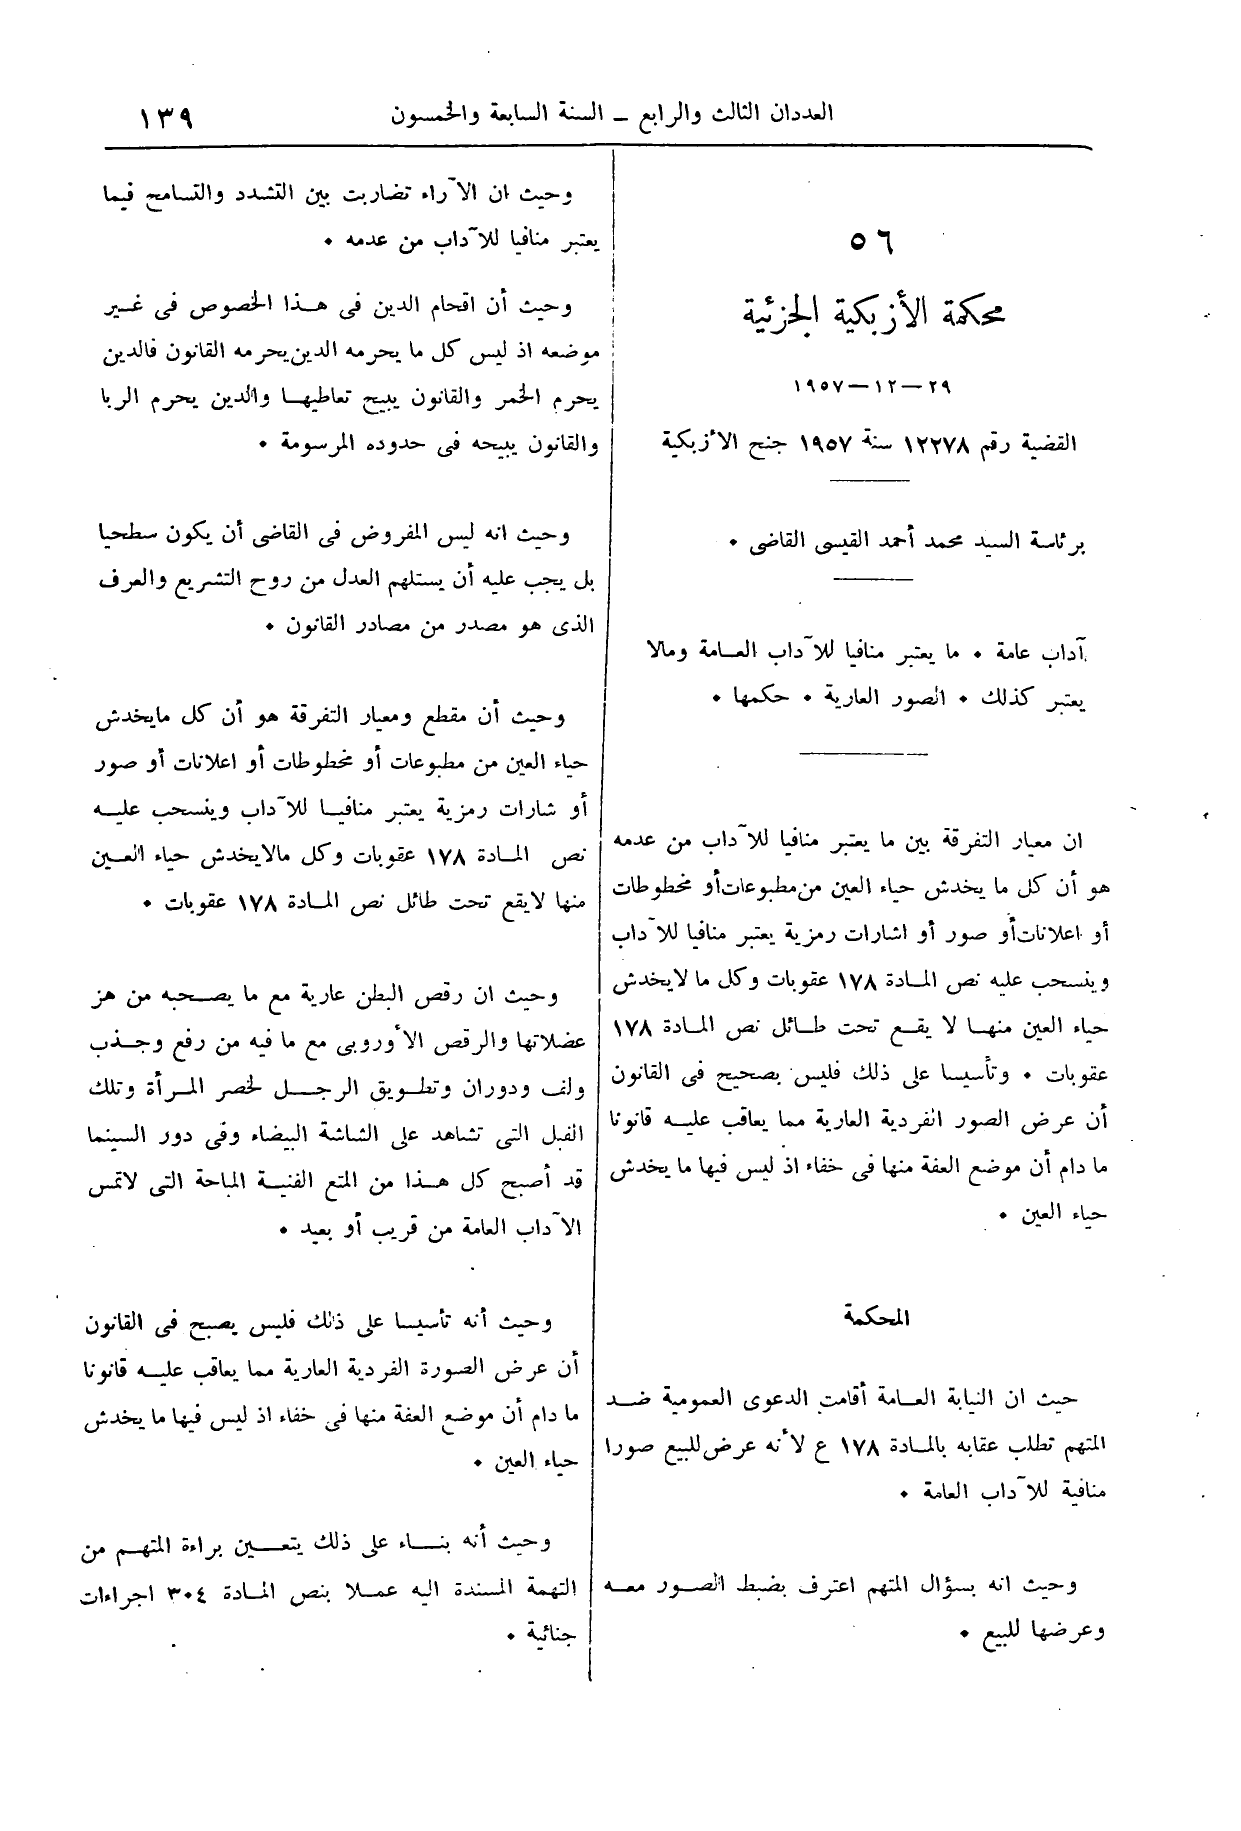 العددان الثالث والرابع – السنة السابعة والخمسون
١٣٩
٥٦
محكمة الأزبكية الجزئية
٢٩—١٢—١٩٥٧
القضية رقم ١٢٢٧٨ سنة ١٩٥٧ جنح الأزبكية
برئاسة السيد محمد أحمد القيسى القاضى •
آداب عامة • ما يعتبر منافيا للآداب العامة ومالا
يعتبر كذلك • الصور العارية • حكمها •
ان معيار التفرقة بين ما يعتبر منافيا للآداب من عدمه
هو أن كل ما يخدش حياء العين من مطبوعات أو مخطوطات
أو اعلانات أو صور أو اشارات رمزية يعتبر منافيا للآداب
وينسحب عليه نص المادة ١٧٨ عقوبات وكل ما لايخدش
حياء العين منها لا يقع تحت طائل نص المادة ١٧٨
عقوبات • وتأسيسا على ذلك فليس بصحيح فى القانون
أن عرض الصور الفردية العارية مما يعاقب عليه قانونا
ما دام أن موضع العفة منها فى خفاء اذ ليس فيها ما يخدش
حياء العين •
المحكمة
حيث ان النيابة العامة أقامت الدعوى العمومية ضد
المتهم تطلب عقابه بالمادة ١٧٨ ع لأنه عرض للبيع صورا
منافية للآداب العامة •
وحيث انه بسؤال المتهم اعترف بضبط الصور معه
وعرضها للبيع •
وحيث ان الآراء تضاربت بين التشدد والتسامح فيما
يعتبر منافيا للآداب من عدمه •
وحيث أن اقحام الدين فى هذا الخصوص فى غير
موضعه اذ ليس كل ما يحرمه الدين يحرمه القانون فالدين
يحرم الخمر والقانون يبيح تعاطيها والدين يحرم الربا
والقانون يبيحه فى حدوده المرسومة •
وحيث انه ليس المفروض فى القاضى أن يكون سطحيا
بل يجب عليه أن يستلهم العدل من روح التشريع والعرف
الذى هو مصدر من مصادر القانون •
وحيث أن مقطع ومعيار التفرقة هو أن كل مايخدش
حياء العين من مطبوعات أو مخطوطات أو اعلانات أو صور
أو شارات رمزية يعتبر منافيا للآداب وينسحب عليه
نص المادة ١٧٨ عقوبات وكل مالايخدش حياء العين
منها لايقع تحت طائل نص المادة ١٧٨ عقوبات •
وحيث ان رقص البطن عارية مع ما يصحبه من هز
عضلاتها والرقص الأوروبى مع ما فيه من رفع وجذب
ولف ودوران وتطويق الرجل لخصر المرأة وتلك
القبل التى تشاهد على الشاشة البيضاء وفى دور السينما
قد أصبح كل هذا من المتع الفنية المباحة التى لاتمس
الآداب العامة من قريب أو بعيد •
وحيث أنه تأسيسا على ذلك فليس يصبح فى القانون
أن عرض الصورة الفردية العارية مما يعاقب عليه قانونا
ما دام أن موضع العفة منها فى خفاء اذ ليس فيها ما يخدش
حياء العين •
وحيث أنه بناء على ذلك يتعين براءة المتهم من
التهمة المسندة اليه عملا بنص المادة ٣٠٤ اجراءات
جنائية •